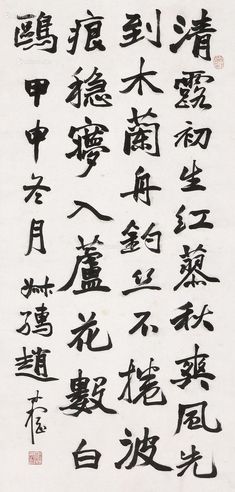 清露初生红蓼秋爽风先
到木蘭舟釣丝不捲波
痕稳夢入蘆花數白
鷗甲申冬月趙